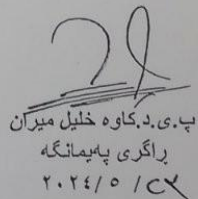 پ.ی.د.کاوە خلیل میران
ڕاگری پەیمانگە
٢٠٢٤/٥ /٢٢